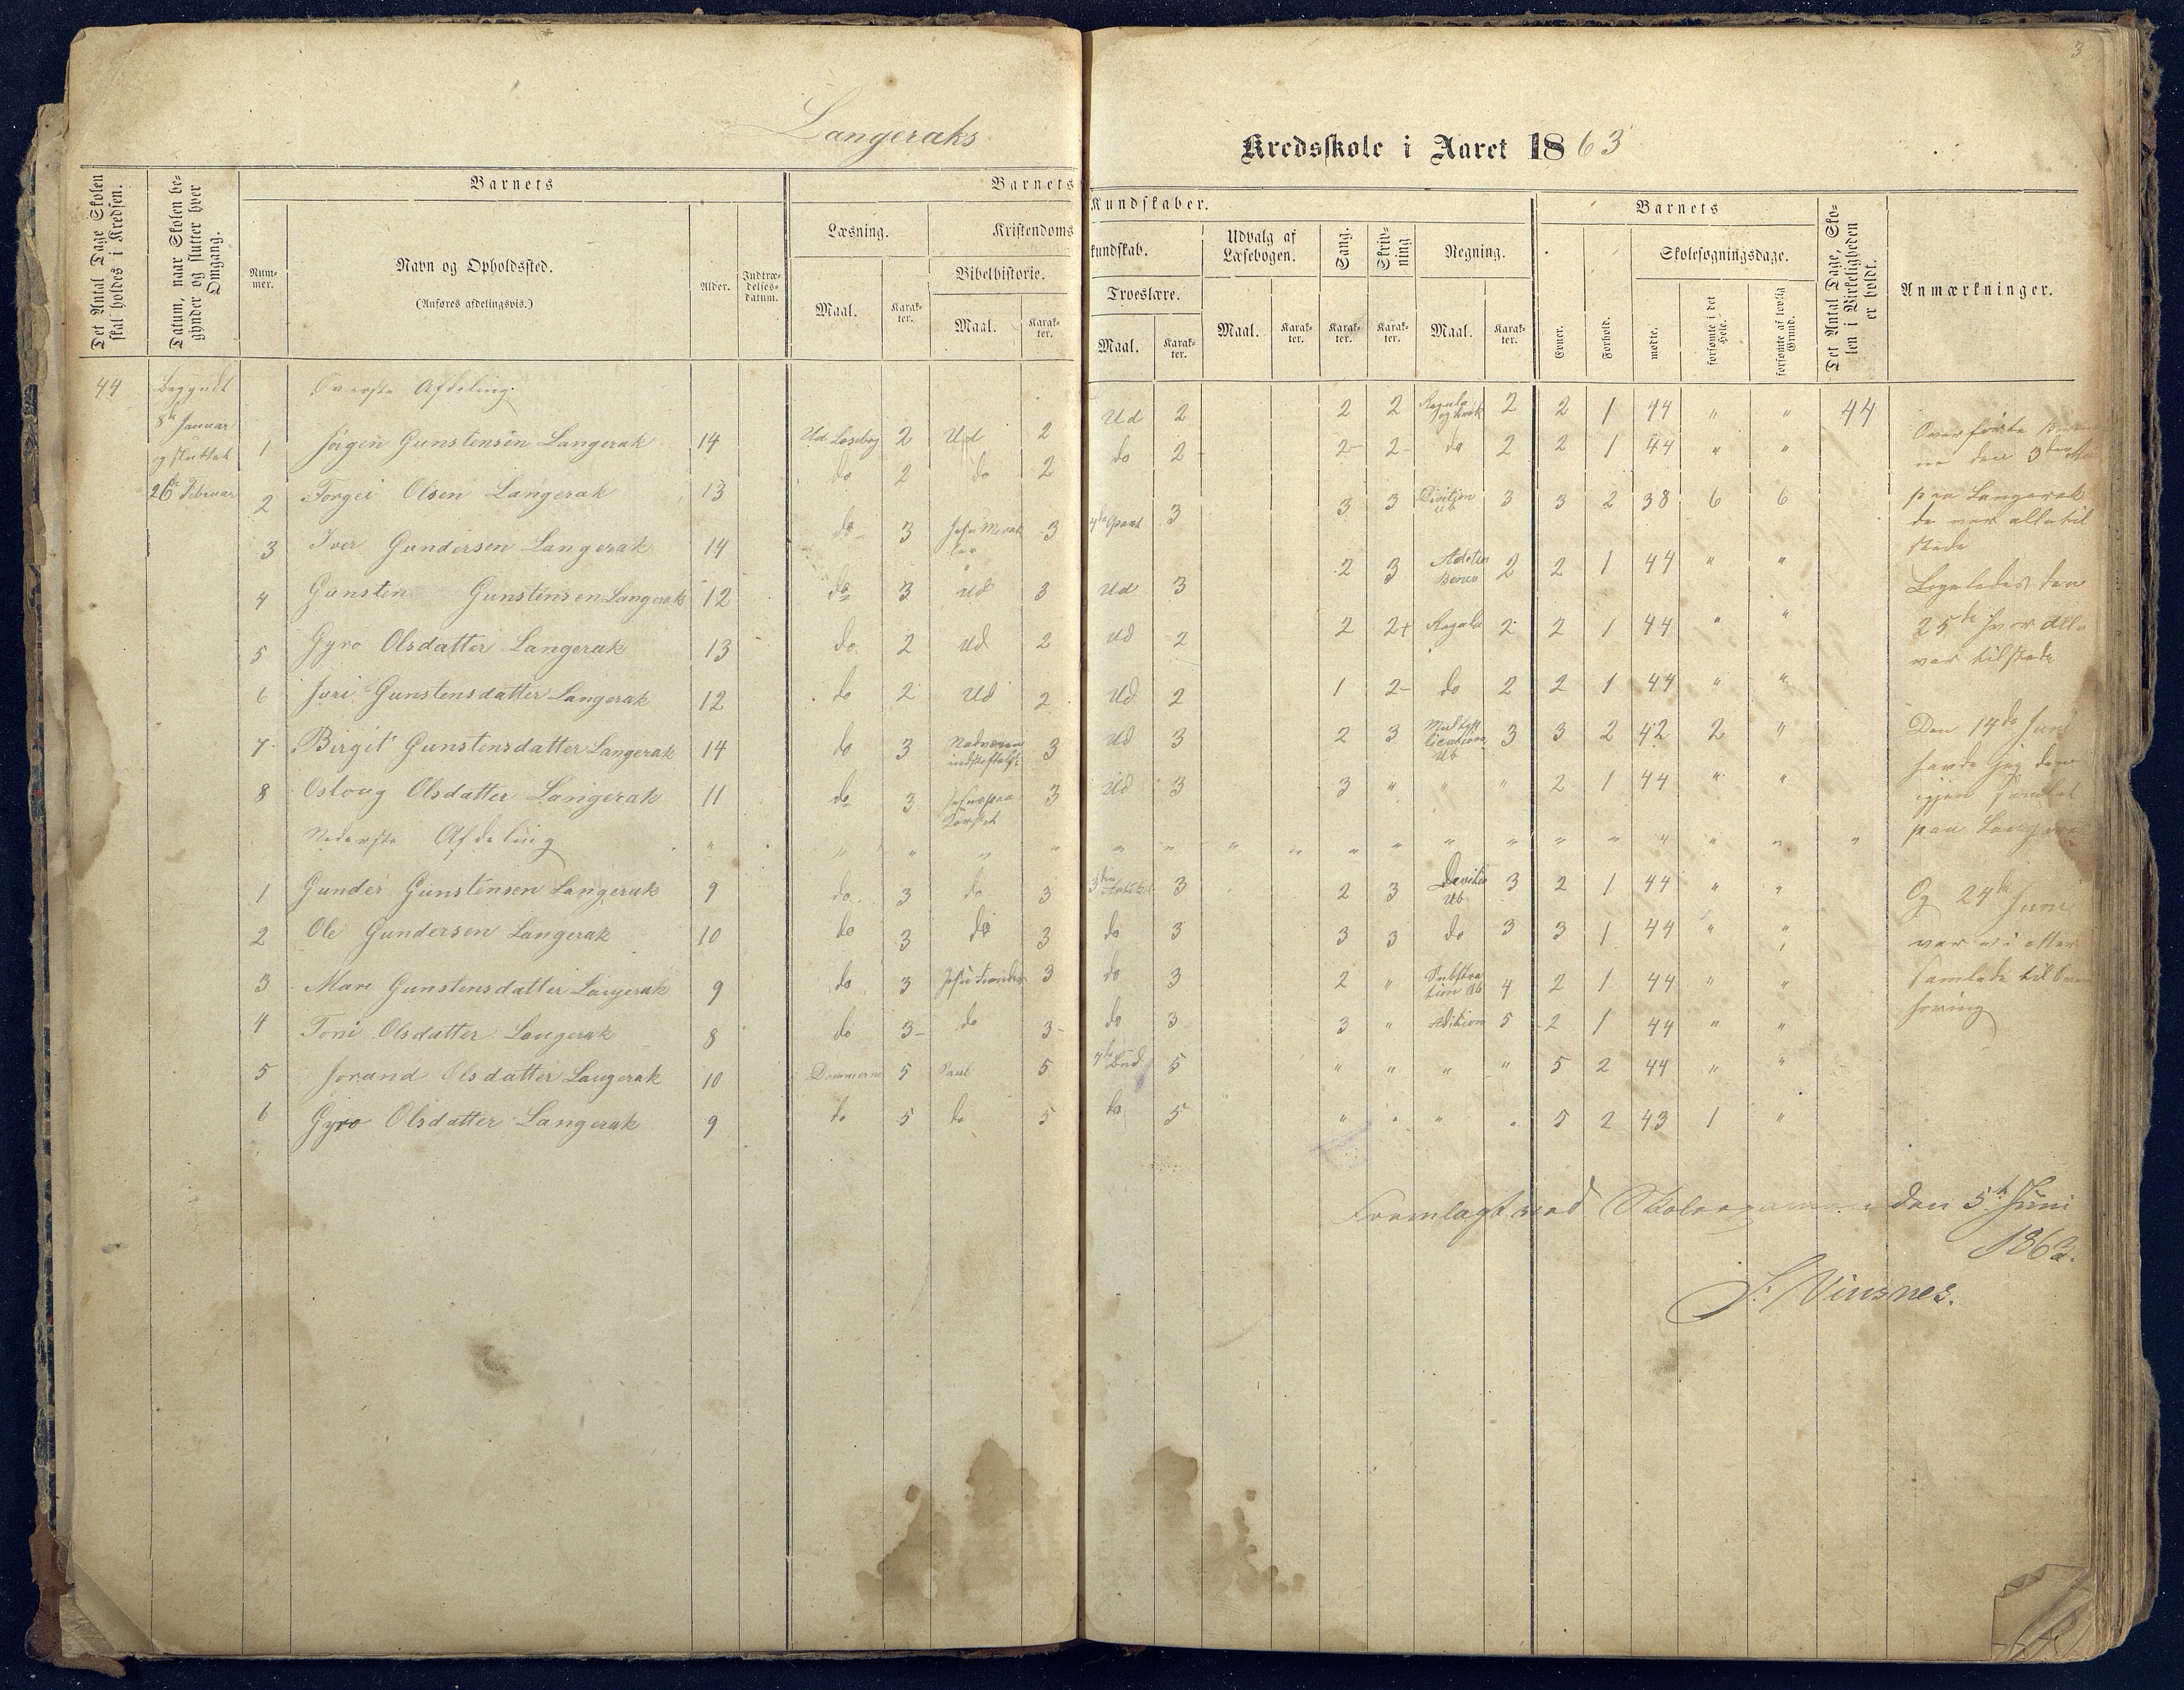 3
Langeraks Kredsskole i Aaret 1863
Det Antal Dage Skolen skal holdes i Kredsen.
Datum, naar Skolen begynder og slutter hver Omgang.
Barnets
Nummer.
Navn og Opholdssted.
(Anføres afdelingsvis.)
Alder.
Indtrædelsesdatum.
Barnets Kundskaber.
Læsning.
Maal.
Karakter.
Kristendomskundskab.
Bibelhistorie.
Maal.
Karakter.
Troeslære.
Maal.
Karakter.
Udvalg af Læsebogen.
Maal.
Karakter.
Sang.
Karakter.
Skrivning
Karakter.
Regning.
Maal.
Karakter.
Barnets
Evner.
Forhold.
Skolesøgningsdage.
mødte.
forsømte i det Hele.
forsømte af lovlig Grund.
Det Antal Dage, Skolen i Virkeligheden er holdt.
Anmærkninger.
44 Begyndt 8de Januar og sluttet 26de Februar
Øverste Afdeling
1 Jørgen Gunstensen Langerak 14 Ud Læsebog 2 Ud 2 Ud 2 2 2 Regula 2 2 1 44 " " 44
2 Torgei Olsen Langerak 13 do 2 do 2 do 2 2 2 do 2 2 1 44 " "
3 Iver Gundersen Langerak 14 do 3 Jesu 3 4de Part 3 3 3 Divition Ub 3 3 2 38 6 6
4 Gunsten Gunstensen Langerak 12 do 3 Ud 3 Ud 3 2 3 2 2 1 44 " "
5 Gyro Olsdatter Langerak 13 do 2 Ud 2 Ud 2 2 2+ Regula 2 2 1 44 " "
6 Juri Gunstensdatter Langerak 12 do 2 Ud 2 Ud 2 1 2- do 2 2 1 44 " "
7 Birgit Gunstensdatter Langerak 14 do 3 Nadverens indstiftelse 3 Ud 3 2 3 Multiplication Ub 3 3 2 42 2 "
8 Osloug Olsdatter Langerak 11 do 3 Jesus paa Korset 3 Ud 3 3 " " " 2 1 44 " "
Nederste Afdeling " " " " " " " " " " " " " " " " " " "
1 Gunder Gunstensen Langerak 9 do 3 do 3 3die Artikel 3 2 3 Devition Ub 3 2 1 44 " "
2 Ole Gundersen Langerak 10 do 3 do 3 do 3 3 3 do 3 3 1 44 " "
3 Mari Gunstensdatter Langerak 9 do 3 Jesu 3 do 3 2 " Substration Ub 4 2 1 44 " "
4 Toni Olsdatter Langerak 8 do 3- do 3- do 3 3 " Adition 5 2 1 44 " "
5 Jorand Olsdatter Langerak 10 Dommerne 5 Saul 5 7de Bud 5 " " " " 5 2 44 " "
6 Gyro Olsdatter Langerak 9 do 5 do 5 do 5 " " " " 5 2 43 1 "
Overhørte
den 3die
paa Langerak
de var alle til
stede
Ligeledes den
25de hvor alle
var tilstede
Den 14de Juni
havde jeg dem
igjen samlet
paa Langerak
Og 24de Juni
var vi etter
samlede til
høring
Fremlagt ved Skoleexamen den 5te Juni
186
S. Vinsnes.